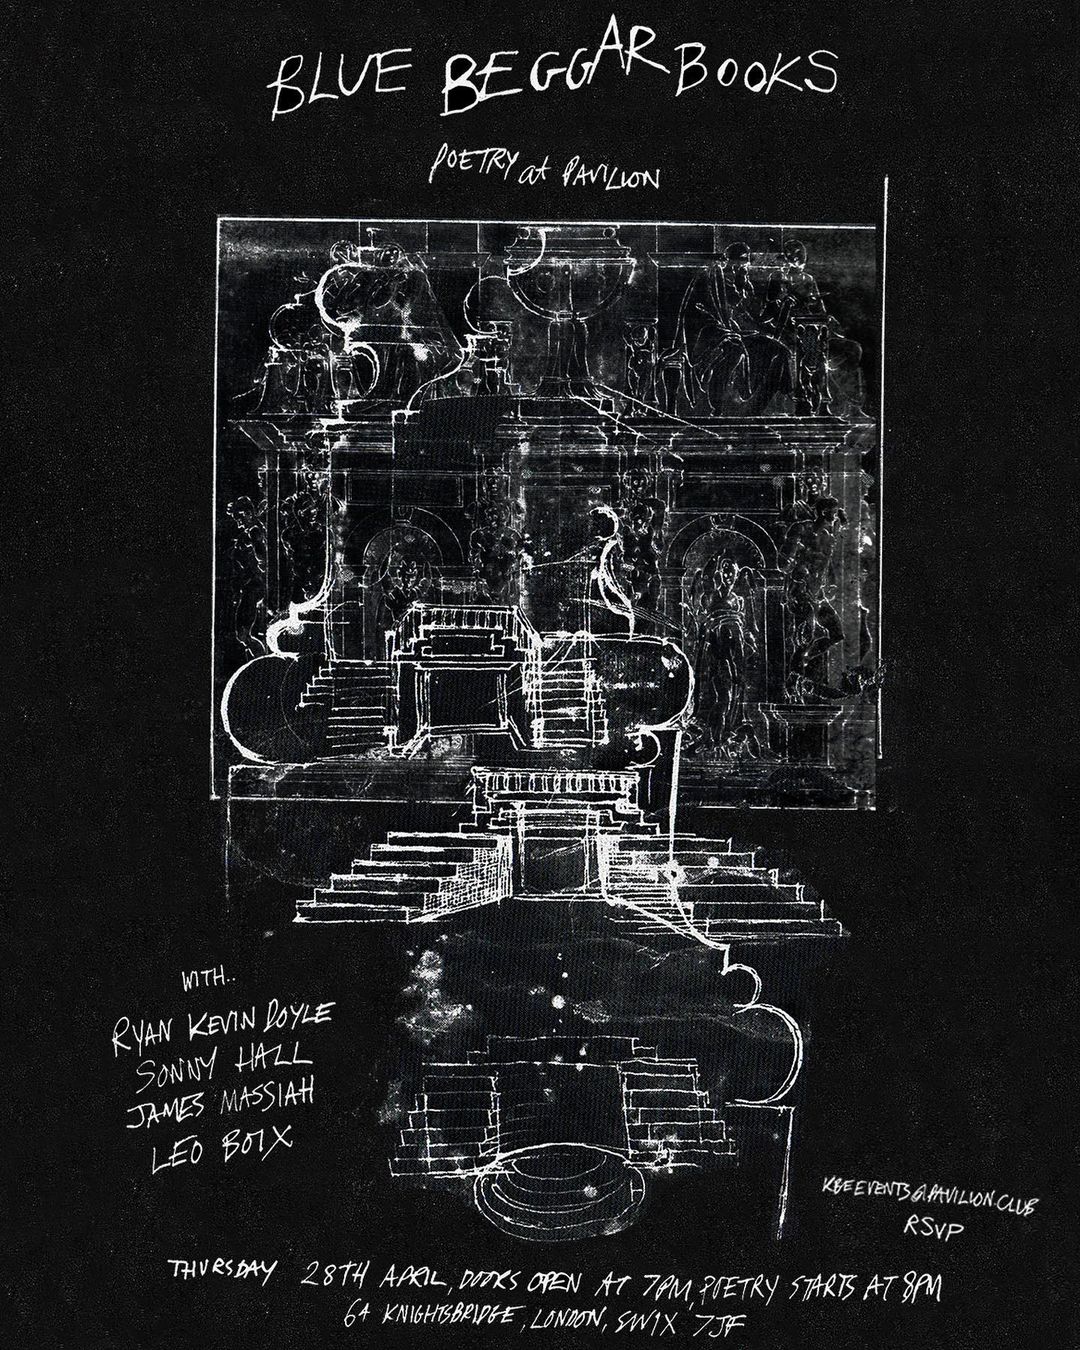 BLUE BEGGAR BOOKS
POETRY at PAVILION
WITH..
RYAN KEVIN DOYLE
SONNY HALL
JAMES MASSIAH
LEO BOIX
KBEEVENTS@PAVILION.CLUB
RSVP
THURSDAY 28TH APRIL, DOORS OPEN AT 7PM, POETRY STARTS AT 8PM
64 KNIGHTSBRIDGE, LONDON, SW1X 7JF